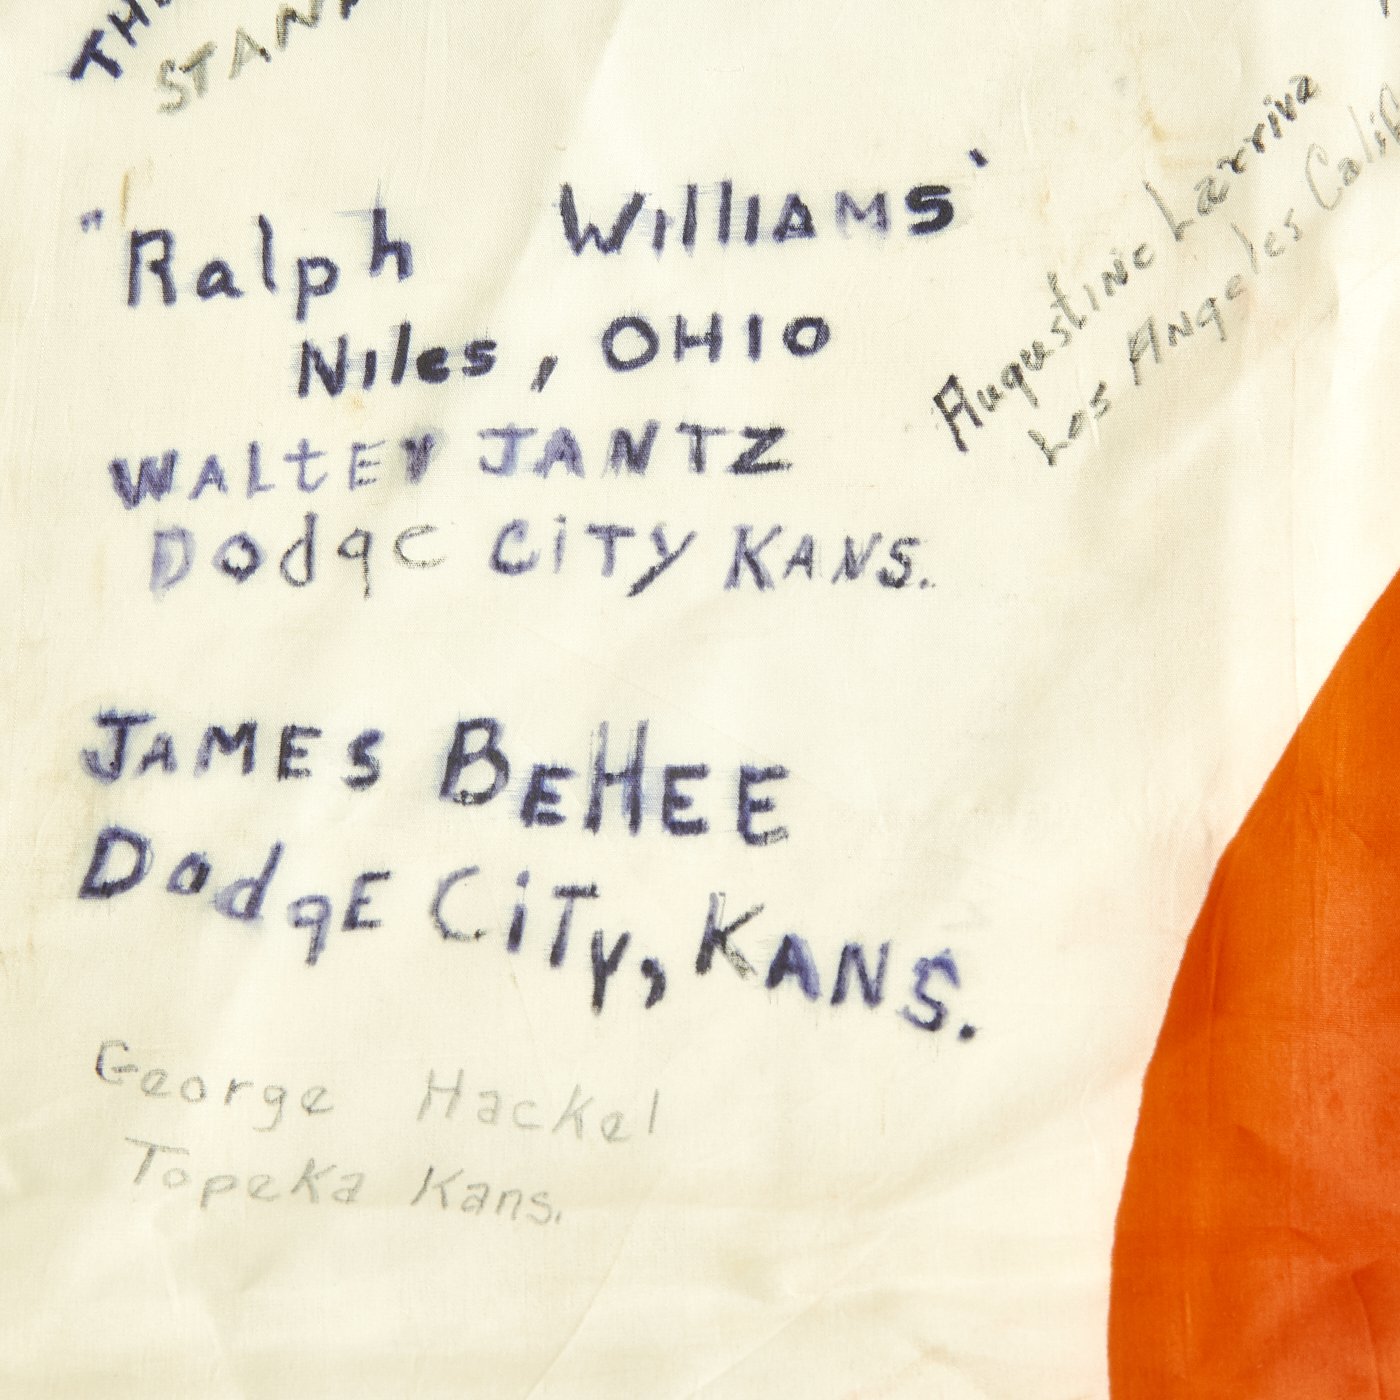 "Ralph Williams'
Niles, OHIO
WALtEY JANTZ
Dodge CiTY KANS.
JAMES BEHEE
DodgE CiTy, KANS.
George Hackel
Topeka Kans.
Augustine Larriva
Los Angeles Calif